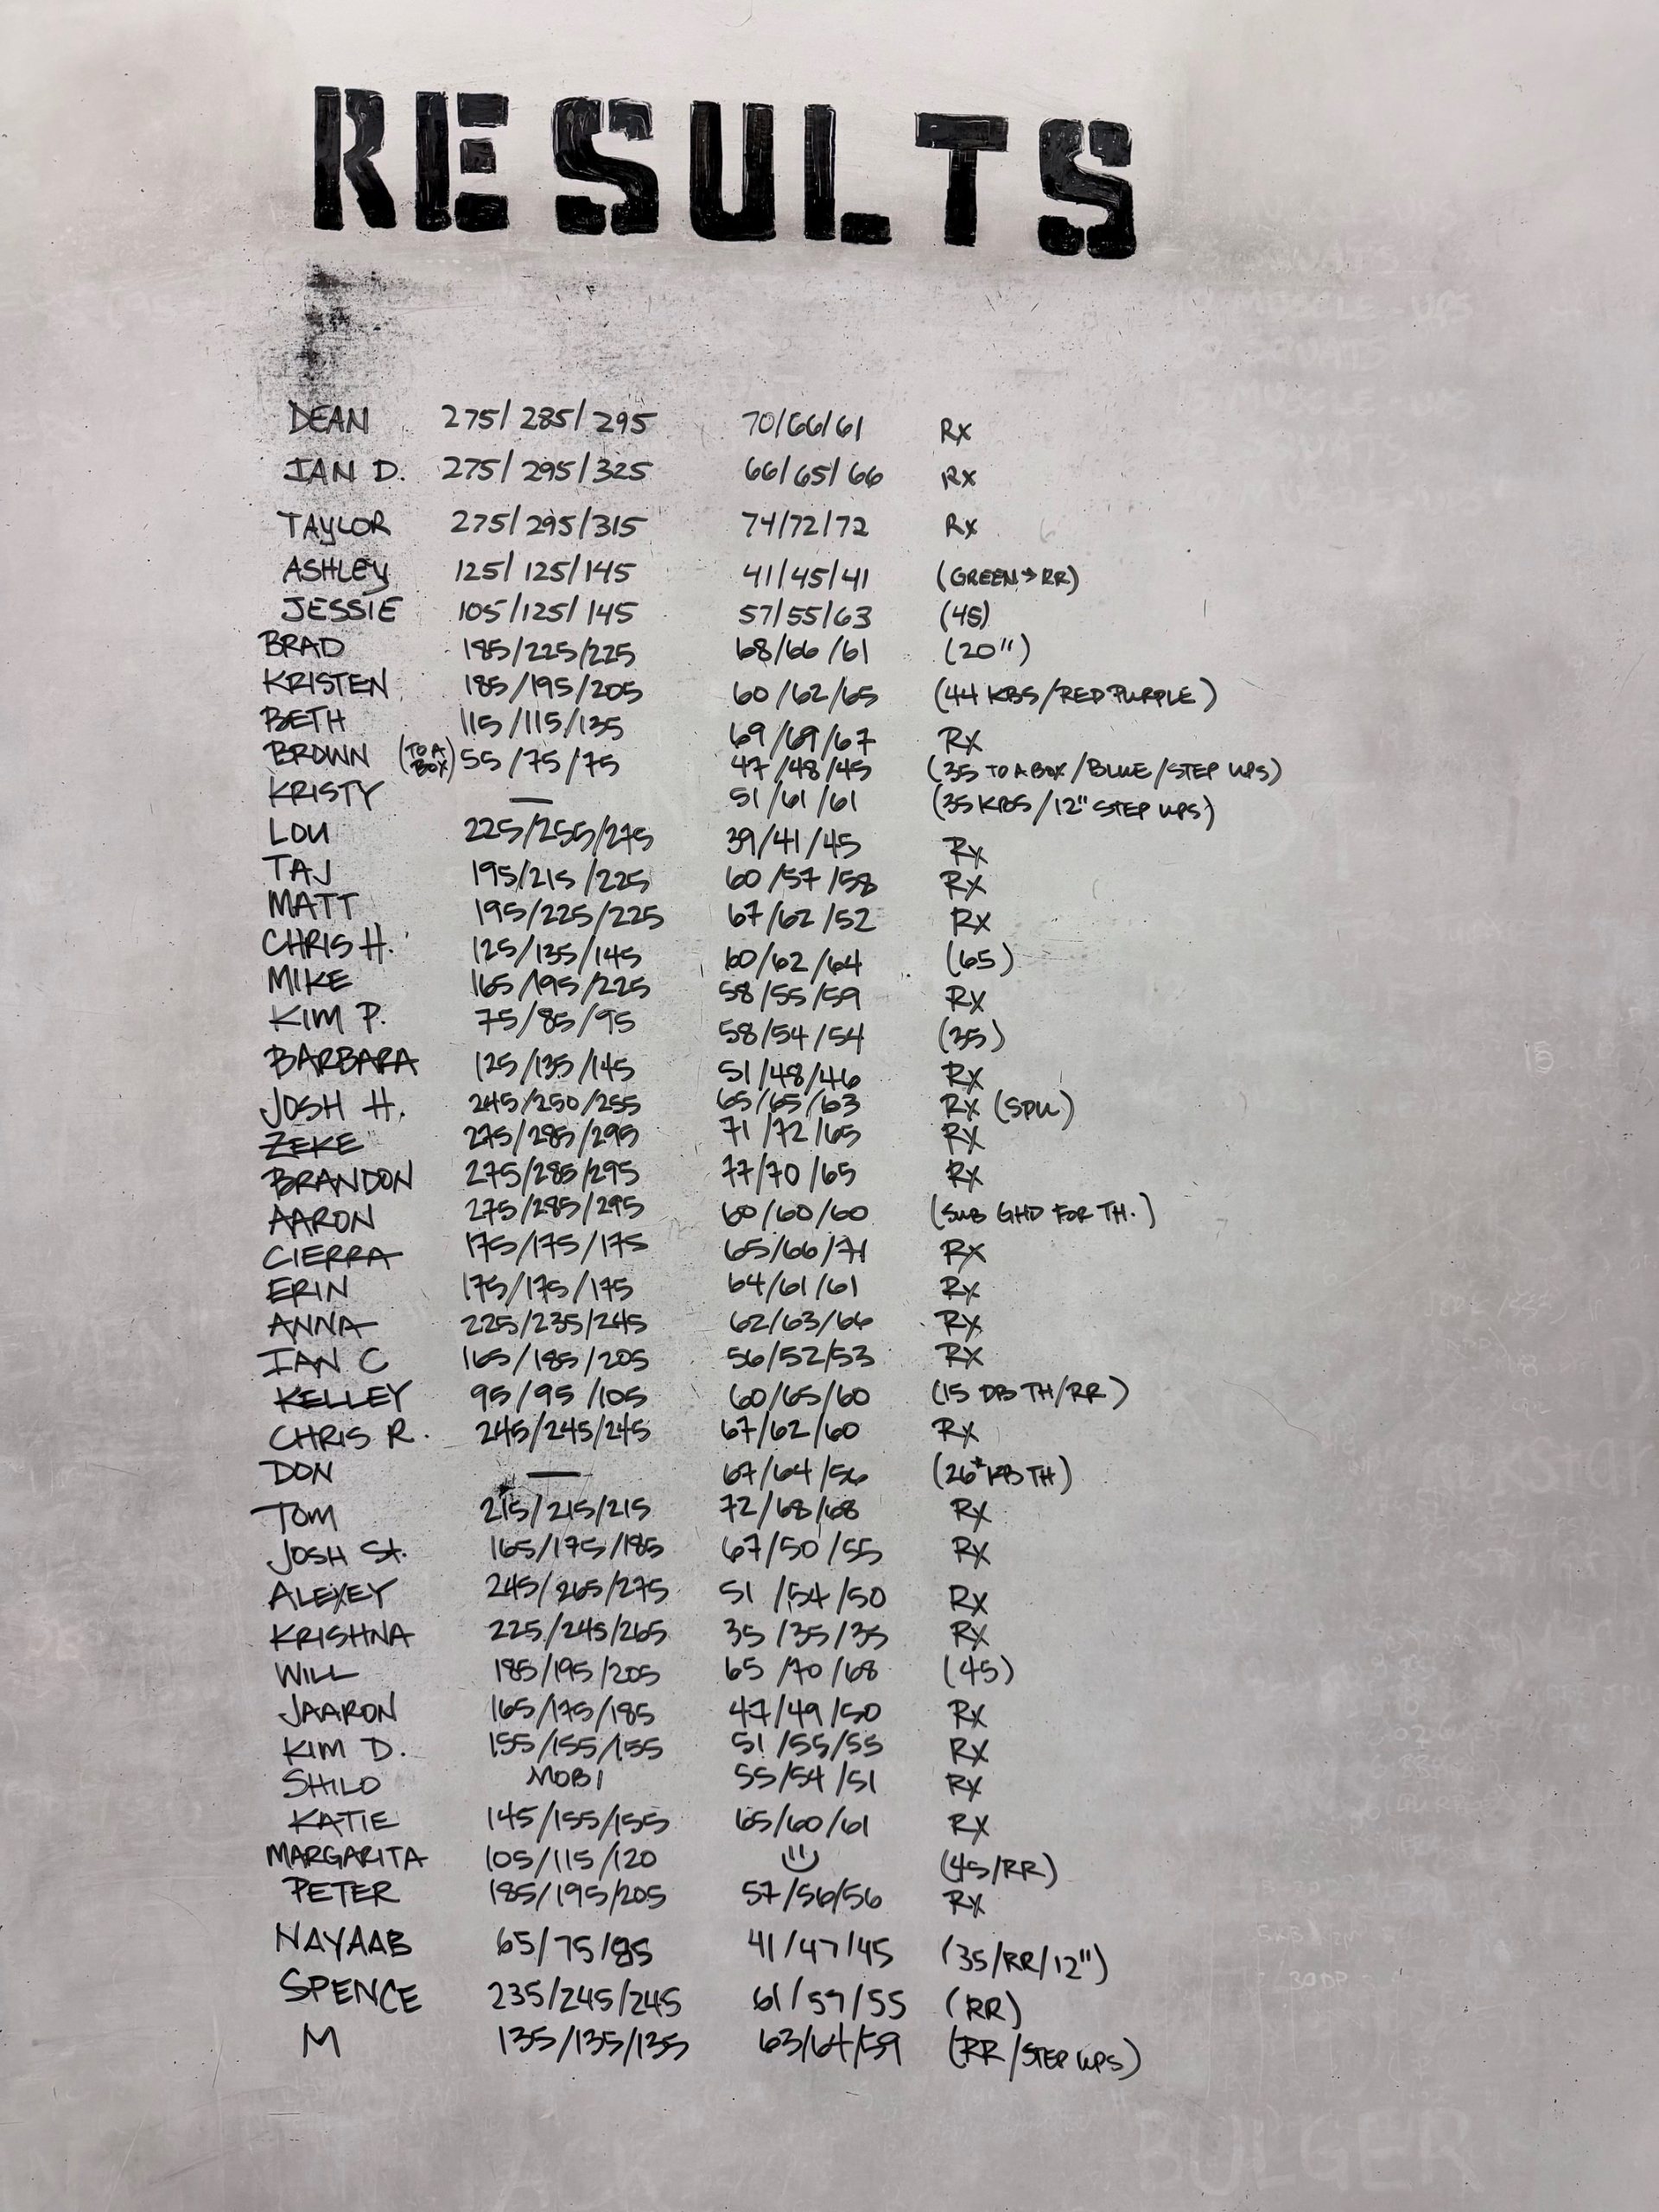 RESULTS
DEAN 275/285/295 70/66/61 Rx
IAN D. 275/295/325 66/65/66 Rx
TAYLOR 275/295/315 74/72/72 Rx
ASHLEY 125/125/145 41/45/41 (GREEN→RR)
JESSIE 105/125/145 57/55/63 (45)
BRAD 185/225/225 68/66/61 (20")
KRISTEN 185/195/205 60/62/65 (44 KBS/RED PURPLE)
BETH 115/115/135 69/69/67 Rx
BROWN (TO A BOX) 55/75/75 47/48/45 (35 TO A BOX/BLUE/STEP UPS)
KRISTY — 51/61/61 (35 KBS/12" STEP UPS)
LOU 225/255/275 39/41/45 Rx
TAJ 195/215/225 60/57/58 Rx
MATT 195/225/225 67/62/52 Rx
CHRIS H. 125/135/145 60/62/64 (65)
MIKE 165/195/225 58/55/59 Rx
KIM P. 75/85/95 58/54/54 (35)
BARBARA 125/135/145 51/48/46 Rx
JOSH H. 245/250/255 65/65/63 Rx (SPU)
ZEKE 275/285/295 71/72/65 Rx
BRANDON 275/285/295 77/70/65 Rx
AARON 275/285/295 60/60/60 (SUB GHD FOR TH.)
CIERRA 175/175/175 65/66/71 Rx
ERIN 175/175/175 64/61/61 Rx
ANNA 225/235/245 62/63/66 Rx
IAN C 165/185/205 56/52/53 Rx
KELLEY 95/95/105 60/65/60 (15 DB TH/RR)
CHRIS R. 245/245/245 67/62/60 Rx
DON — 67/64/56 (26# KB TH)
TOM 215/215/215 72/68/68 Rx
JOSH St. 165/175/185 67/50/55 Rx
ALEXEY 245/265/275 51/54/50 Rx
KRISHNA 225/245/265 35/35/35 Rx
WILL 185/195/205 65/70/68 (45)
JAARON 165/175/185 47/49/50 Rx
KIM D. 155/155/155 51/55/55 Rx
SHILO MOBI 55/54/51 Rx
KATIE 145/155/155 65/60/61 Rx
MARGARITA 105/115/120 (45/RR)
PETER 185/195/205 57/56/56 Rx
NAYAAB 65/75/85 41/47/45 (35/RR/12")
SPENCE 235/245/245 61/57/55 (RR)
M 135/135/135 63/64/59 (RR/STEP UPS)
BULGER